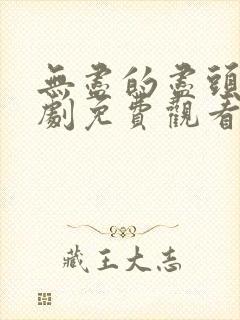 無盡的盡頭
劇免費觀看
藏王大志